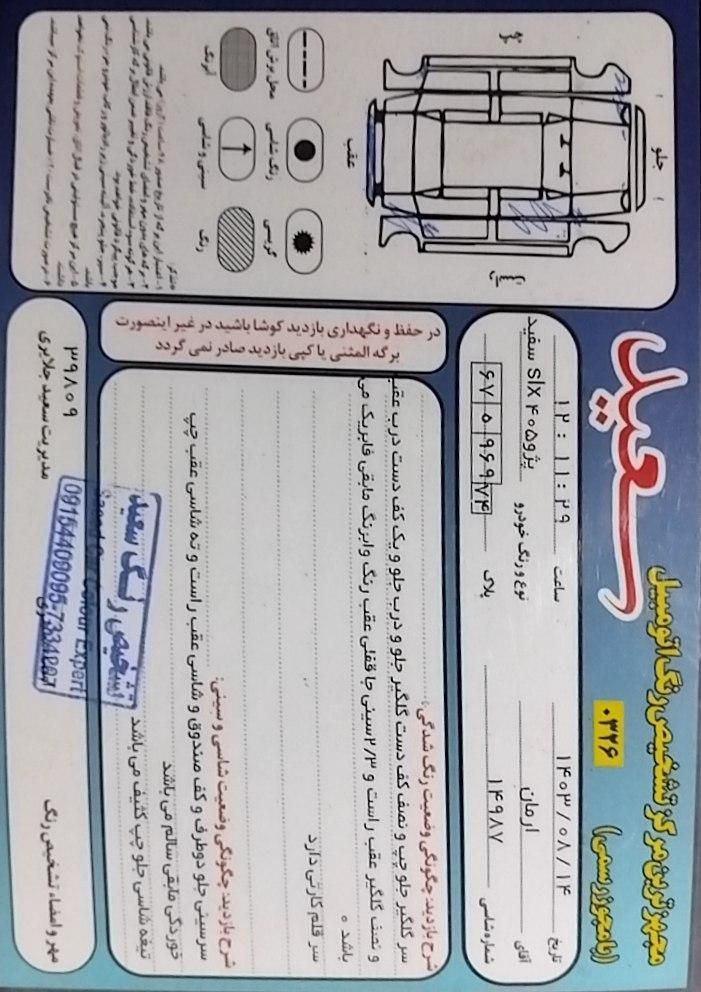 مجهزترین مرکز تشخیص رنگ اتومبیل
سعید
(با مجوز رسمی)
۰۳۲۶
تاریخ ۱۴۰۳/۰۸/۱۴
ساعت ۱۲:۱۱:۲۹
آقای آرمان
نوع و رنگ خودرو پژو۴۰۵ SlX سفید
شماره شاسی ۱۴۹۸۷
پلاک ۶۷ ۵ ۹۶۹ ۷۴
شرح بازدید: چگونگی وضعیت رنگ شدگی:
سر گلگیر جلو چپ و نصف کف دست گلگیر جلو و درب جلو و یک کف دست درب عقب
و نصف گلگیر عقب راست و ۲/۳سینی جا قفلی عقب رنگ وابرنگ مابقی فابریک می
باشد ه
سر قلم کارتی دارد
شرح بازدید: چگونگی وضعیت شاسی و سینی:
سرسینی جلو دوطرف و کف صندوق و شاسی عقب راست و ته شاسی عقب چپ
خوردگی مابقی سالم می باشد
تیغه شاسی جلو چپ کثیف می باشد
تشخیص رنگ سعید
Saeed Car Colour Expert
09154409095-7334887
در حفظ و نگهداری بازدید کوشا باشید در غیر اینصورت
برگه المثنی یا کپی بازدید صادر نمی گردد
مهر و امضاء تشخیص رنگ
۳۹۸۰۹
مدیریت سعید جلایری
جلو
عقب
راست
چپ
محل برش اتاق
رنگ شاسی
گریسی
آبرنگ
سینی و شاسی
رنگ